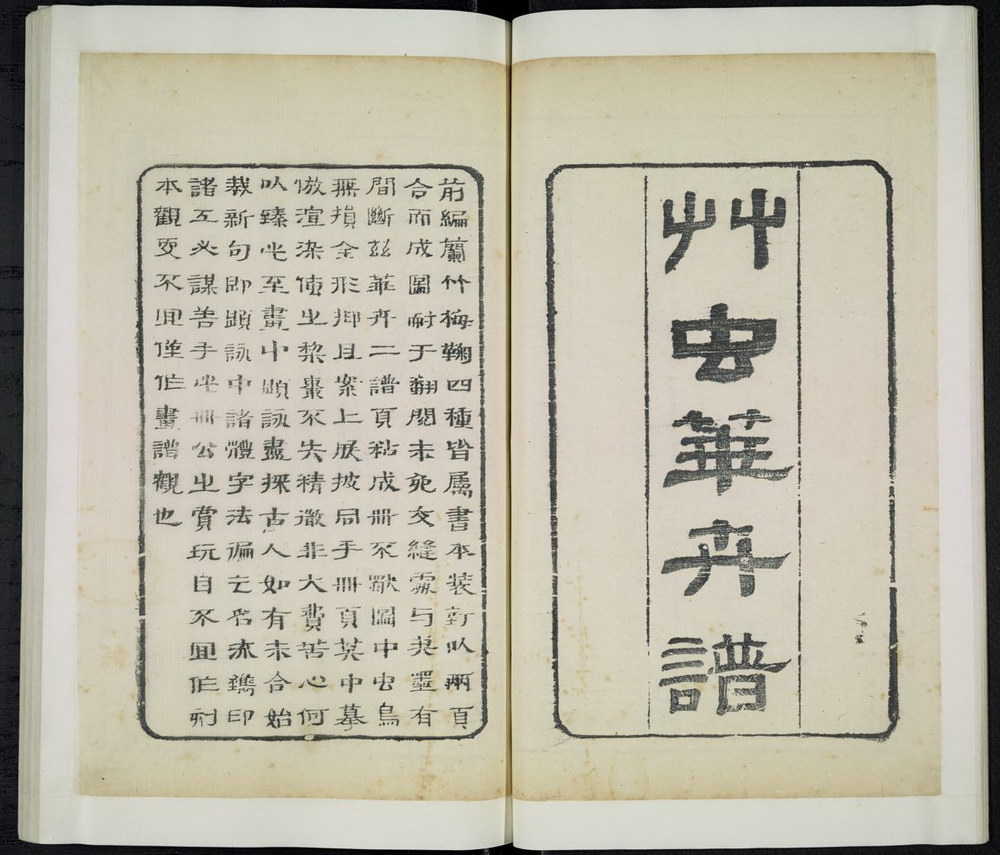 艸虫華卉譜
前編蘭竹梅鞠四種皆屬書本裝訂以兩頁
合而成圖耐于翻閱未免交縫處与夾墨有
間斷兹華卉二譜頁粘成冊不獨圖中虫鳥
無損全形抑且案上展披同乎冊頁其中摹
倣渲染使之棃棗不失精微非大費苦心何
以臻此至畫中題詠盡採古人如有未合始
裁新句即題詠中諸體字法徧乞名流鐫印
諸工必謀善手此冊公之賞玩自不冝作刻
本觀更不冝僅作畫譜觀也